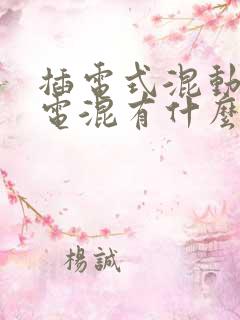 插電式混動
電混有什麼
楊誠